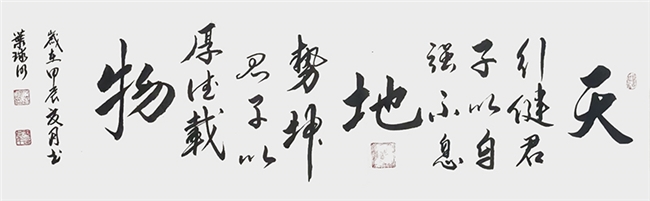 天
行健君
子以自
强不息
地
勢坤
君子以
厚德載
物
歲在甲辰夏月书
葉